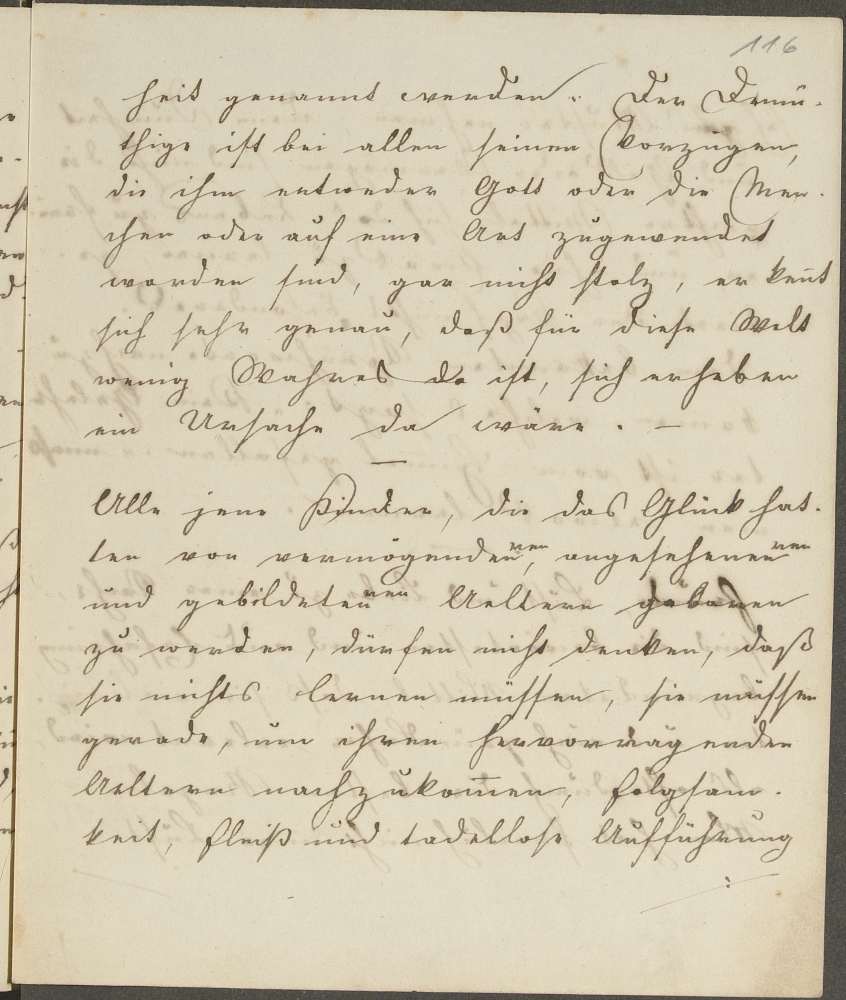 116
heit genannt werden. Der Demü-
thige ist bei allen seinen Vorzügen,
die ihm entweder Gott oder die Men-
chen oder auf eine Art zugewendet
worden sind, gar nicht stolz, er keñt
sich sehr genau, daß für diese Welt
wenig Wahres da ist, sich erheben
ein Ursache da wäre. —
Alle jene Kinder, die das Glück hat-
ten von vermögenden, angesehenen
und gebildeten Aeltern geboren
zu werden, dürfen nicht denken, daß
sie nichts lernen müssen, sie müssen
gerade, um ihren hervorragenden
Aeltern nachzukom̄en, Folgsam-
keit, Fleiß und tadellose Aufführung